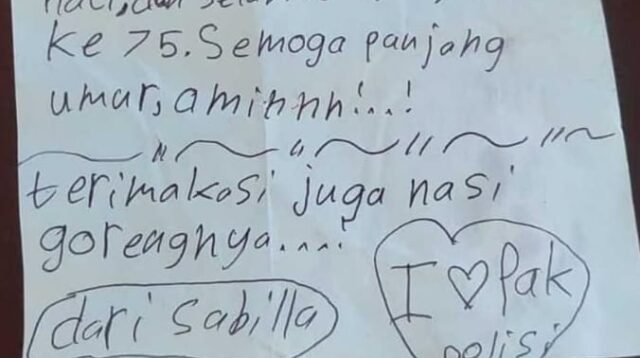 ke 75. Semoga panjang
umur, aminnnn!..!
terimakasi juga nasi
goreagnya....!
I ♡ Pak
polisi
dari Sabilla